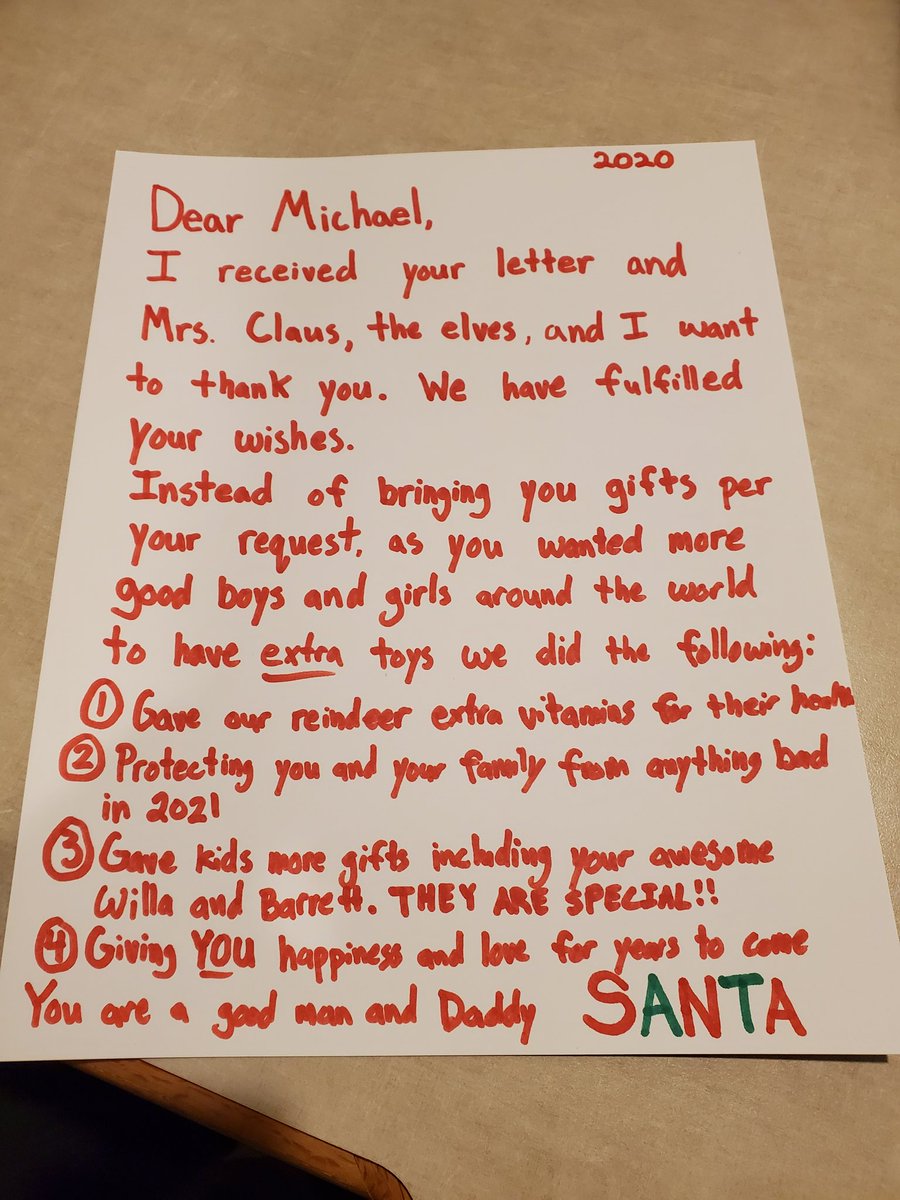 2020
Dear Michael,
I received your letter and
Mrs. Claus, the elves, and I want
to thank you. We have fulfilled
your wishes.
Instead of bringing you gifts per
your request, as you wanted more
good boys and girls around the world
to have extra toys we did the following:
① Gave our reindeer extra vitamins for their health
② Protecting you and your family from anything bad
in 2021
③ Gave kids more gifts including your awesome
Willa and Barrett. THEY ARE SPECIAL!!
④ Giving YOU happiness and love for years to come
You are a good man and Daddy SANTA